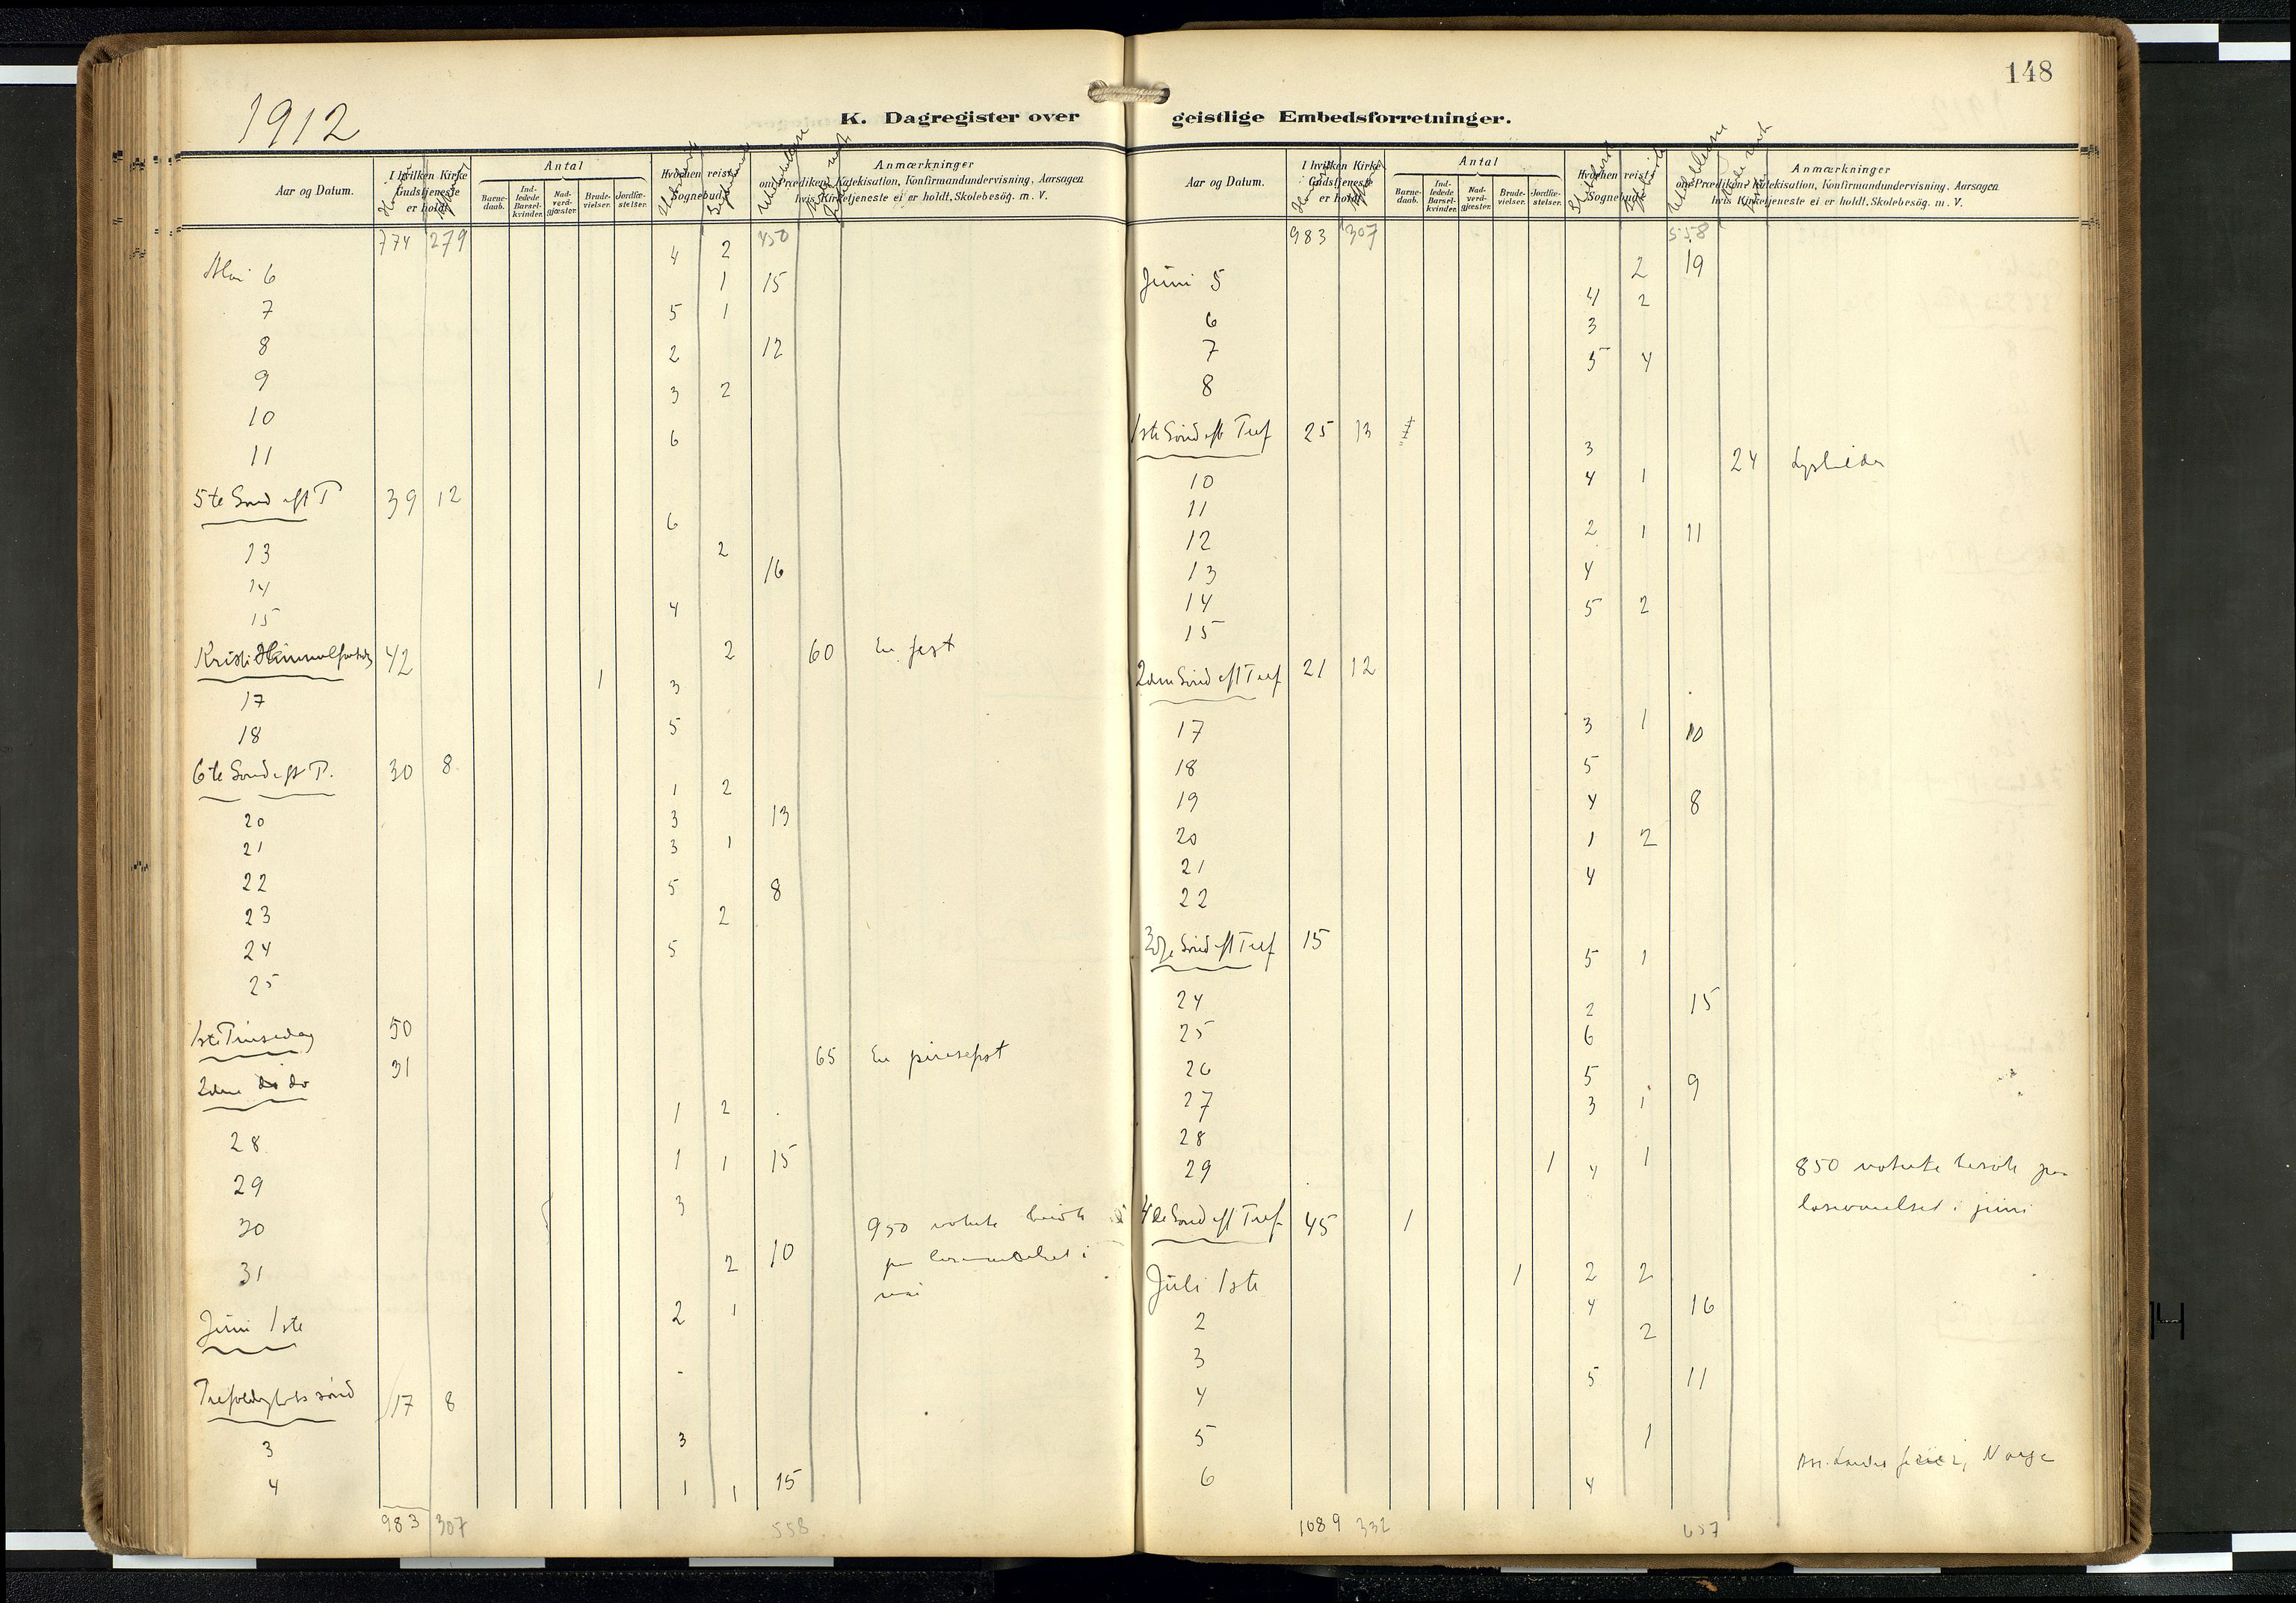 148
1912
K. Dagregister over geistlige Embedsforretninger.
Aar og Datum.
I hvilken Kirke Gudstjeneste er holdt.
Antal
Barne-daab.
Ind-ledede Barsel-kvinder.
Nad-verd-gjæster.
Brude-vielser.
Jordfæ-stelser.
Hvorhen reist i Sognebud.
Anmærkninger
om Prædiken, Katekisation, Konfirmandundervisning, Aarsagen
hvis Kirketjeneste ei er holdt, Skolebesög. m. V.
774 279 450
4 2
Mai 6 1 15
7 5 1
8 2 12
9 3 2
10
11 6
5te Sønd eft P 39 12
6
13 2
14 16
15 4
Kristi Himmelfartsdag 42 2 60 En fest
1 3
17
18 5
6te Sønd eft P. 30 8
1 2
20 3 13
21 3 1
22 5 8
23 2
24 5
25
1ste Pinsedag 50
65 En pinsefest
2den do do 31
1 2
28
1 1 15
29
3
30 950 besøk
2 10 i
31 mai
2 1
Juni 1ste
Trefoldighets sønd 17 8
3 3
4 1 1 15
983 307 558
Aar og Datum.
I hvilken Kirke Gudstjeneste er holdt.
Antal
Barne-daab.
Ind-ledede Barsel-kvinder.
Nad-verd-gjæster.
Brude-vielser.
Jordfæ-stelser.
Hvorhen reist i Sognebud.
Anmærkninger
om Prædiken, Katekisation, Konfirmandundervisning, Aarsagen
hvis Kirketjeneste ei er holdt, Skolebesög. m. V.
983 307 558
2 19
Juni 5
4 2
6 3
7 5 4
8
1ste Sønd eft Tref 25 13
3
24 Lysbilder
10 4 1
11
12 2 1 11
13 4
14 5 2
15
2den Sønd eft Tref 21 12
17 3 1 10
18 5
19 4 8
20 1 2
21 4
22
3dje Sønd eft Tref 15
5 1
24 2 15
25 6
26 5 9
27 3 1
28
29 1 4 1 850 besøk paa
læseværelset i juni
4de Sønd eft Tref 45 1
Juli 1ste 1 2 2
4 16
2 2
3
5 11
4
5 1
ferie i Norge
6 4
1089 332 657